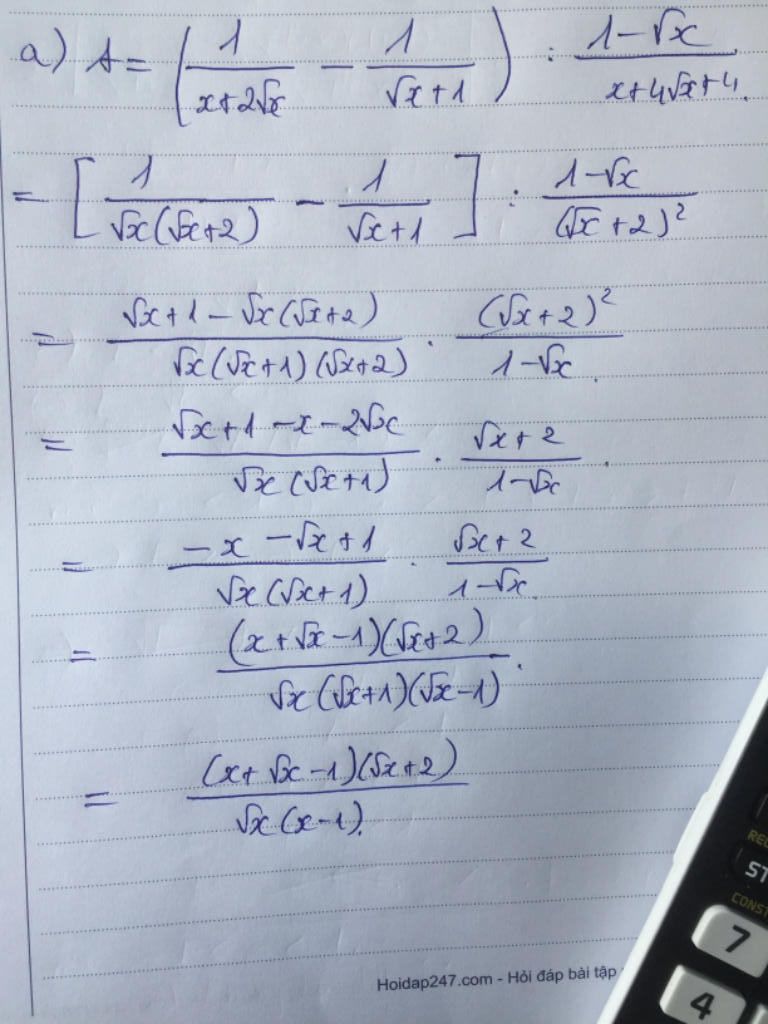 a) A = (1/(x+2√x) − 1/(√x+1)) : (1−√x)/(x+4√x+4).
= [1/(√x(√x+2)) − 1/(√x+1)] : (1−√x)/(√x+2)²
= (√x+1−√x(√x+2))/(√x(√x+1)(√x+2)) . (√x+2)²/(1−√x).
= (√x+1−x−2√x)/(√x(√x+1)) . (√x+2)/(1−√x).
= (−x−√x+1)/(√x(√x+1)) . (√x+2)/(1−√x).
= (x+√x−1)(√x+2)/(√x(√x+1)(√x−1)).
= (x+√x−1)(√x+2)/(√x(x−1)).
Hoidap247.com - Hỏi đáp bài tập
7
4